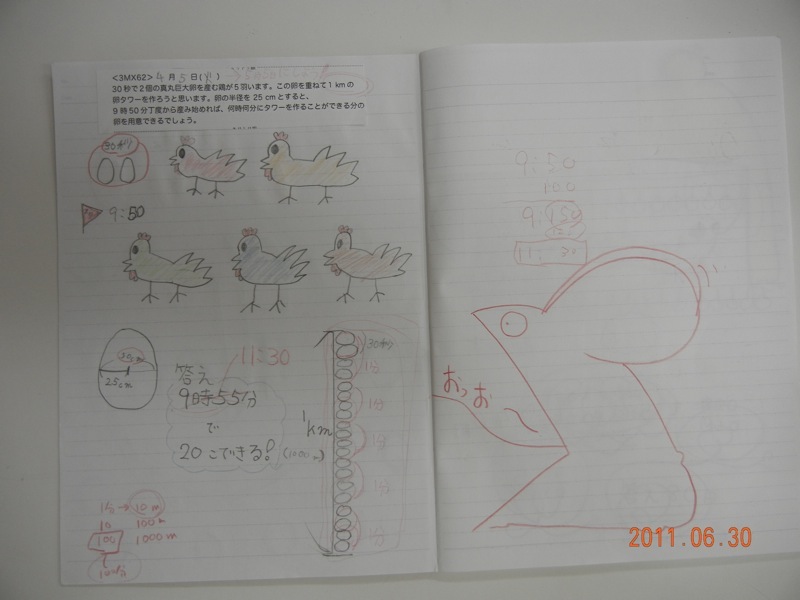 <3MX62> 4月5日(火)
30秒で2個の真丸巨大卵を産む鶏が5羽います。この卵を重ねて1kmの
卵タワーを作ろうと思います。卵の半径を25cmとすると、
9時50分丁度から産み始めれば、何時何分にタワーを作ることができる分の
卵を用意できるでしょう。
30びり
9:50
25cm
25cm
11:30
答え
9時55分
で
20こできる!
1km
(1000m)
30びり
1分
1分
1分
1分
1分
1分→10m
10 100m
100 1000m
100分
9:50
100
9:150
11:30
おっお
2011.06.30